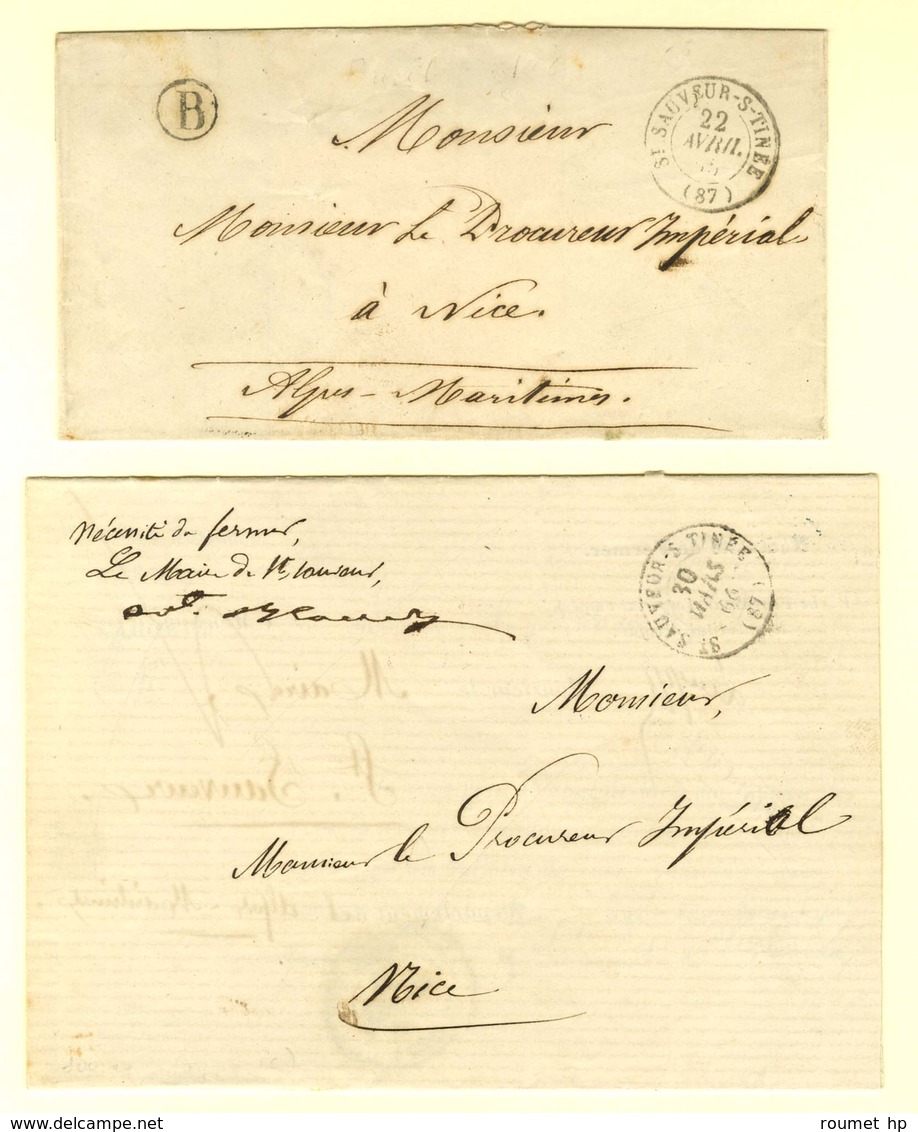 B
ST SAUVEUR-S-TINÉE
22
AVRIL
(87)
Monsieur
Monsieur Le Procureur Impérial
à Nice.
Alpes-Maritimes.
Nécessité de fermer,
Le Maire de St, sauveur,
ST SAUVEUR-S-TINÉE
30
MARS
66
(87)
Monsieur,
Monsieur le Procureur Impérial
Nice
roumet hp
delcampe.net